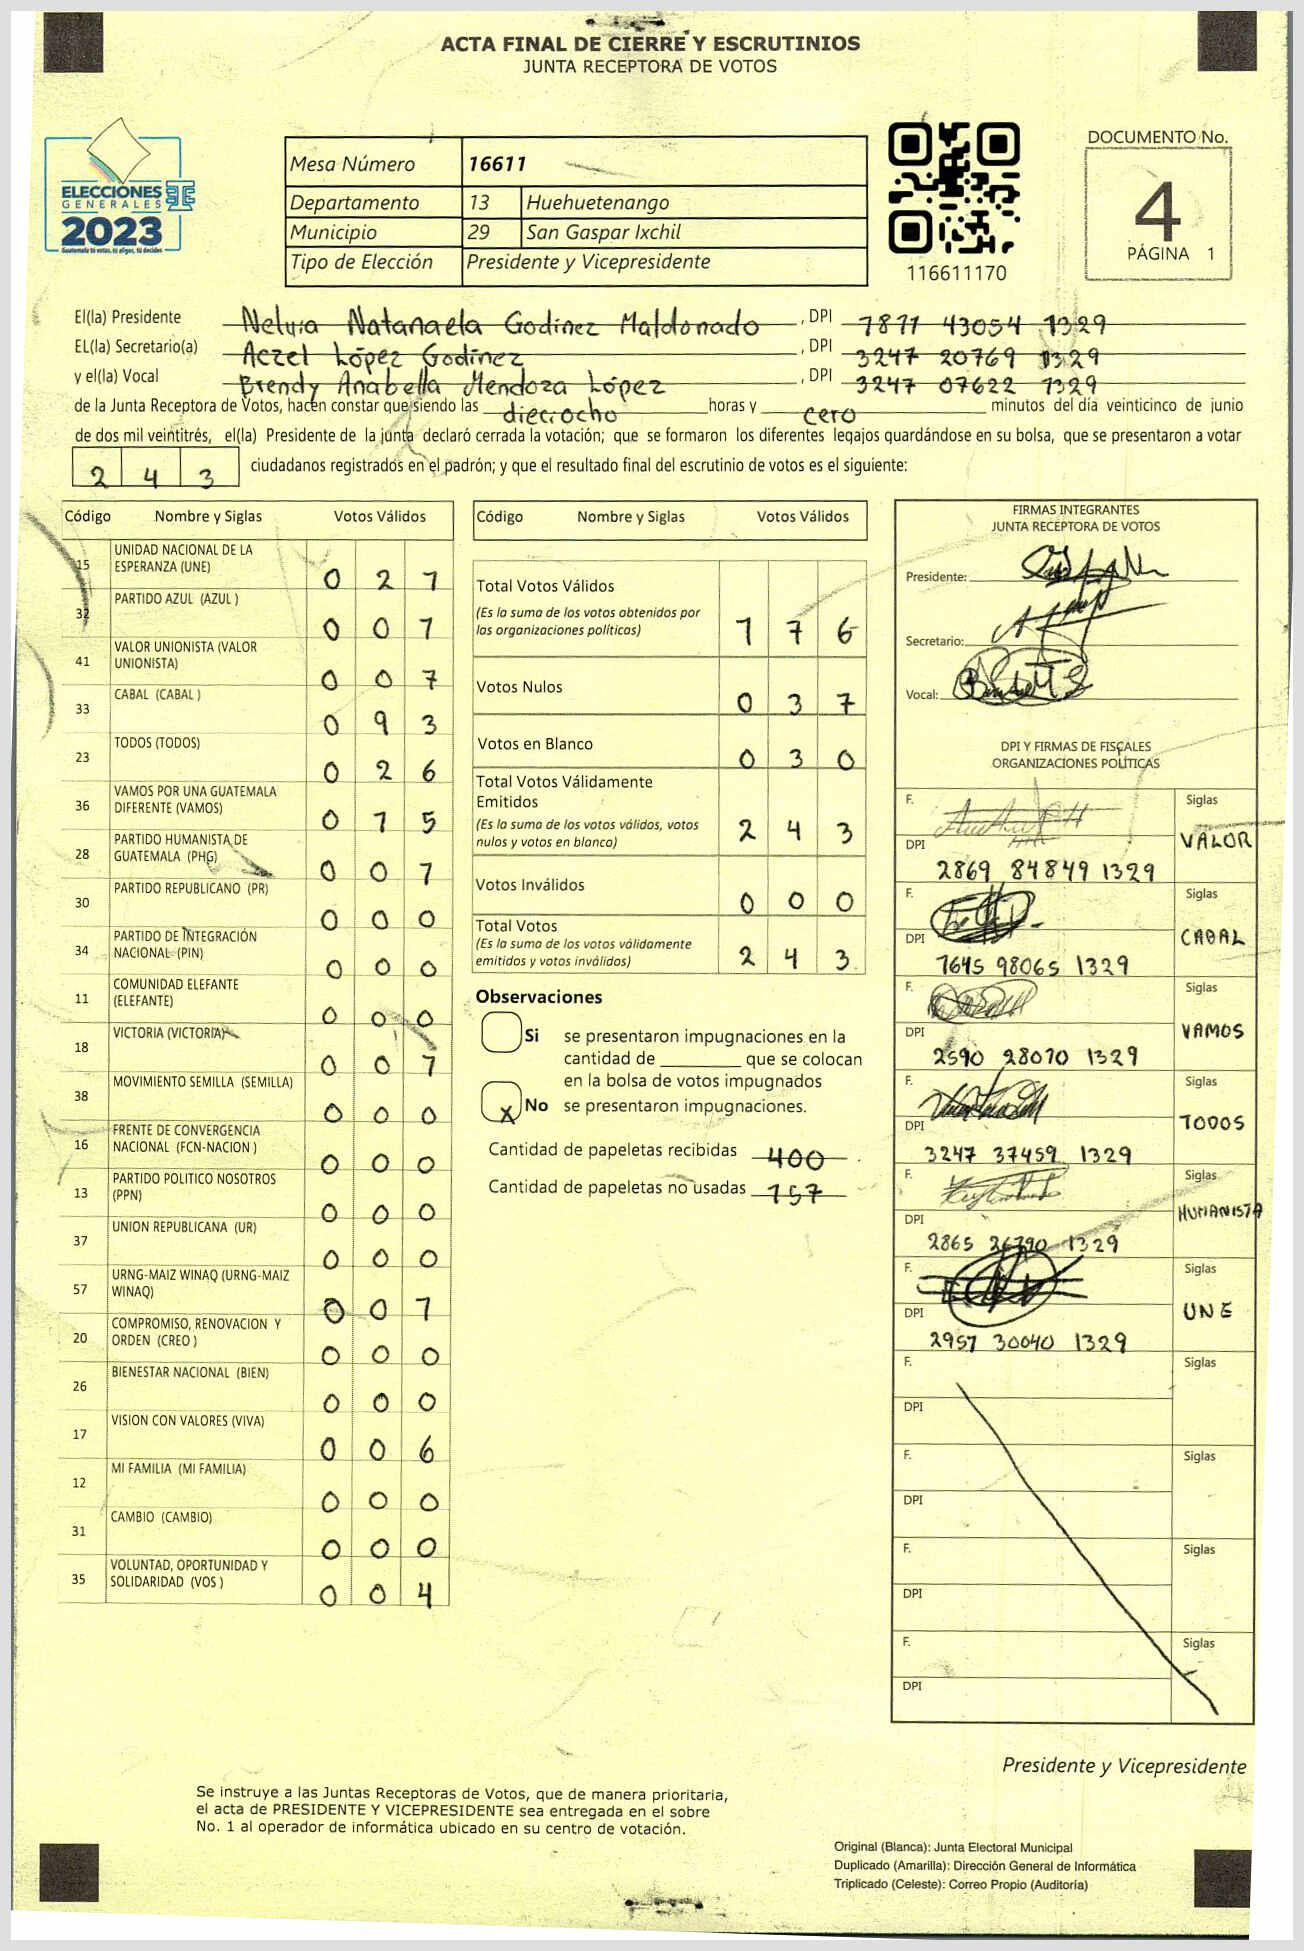 ACTA FINAL DE CIERRE Y ESCRUTINIOS
JUNTA RECEPTORA DE VOTOS
ELECCIONES
GENERALES
2023
Guatemala tú votas, tú eliges, tú decides
Mesa Número 16611
Departamento 13 Huehuetenango
Municipio 29 San Gaspar Ixchil
Tipo de Elección Presidente y Vicepresidente
116611170
DOCUMENTO No.
4
PÁGINA 1
El(la) Presidente Nelvia Natanaela Godinez Maldonado, DPI 1871 43054 1329
EL(la) Secretario(a) Aczel López Godínez, DPI 3247 20769 1329
y el(la) Vocal Brendy Anabella Mendoza López, DPI 3247 07622 1329
de la Junta Receptora de Votos, hacen constar que siendo las dieciocho horas y cero minutos del día veinticinco de junio
de dos mil veintitrés, el(la) Presidente de la junta declaró cerrada la votación; que se formaron los diferentes legajos guardándose en su bolsa, que se presentaron a votar
2 4 3 ciudadanos registrados en el padrón; y que el resultado final del escrutinio de votos es el siguiente:
Código Nombre y Siglas Votos Válidos
15 UNIDAD NACIONAL DE LA
ESPERANZA (UNE) 0 2 1
32 PARTIDO AZUL (AZUL ) 0 0 1
41 VALOR UNIONISTA (VALOR
UNIONISTA) 0 0 7
33 CABAL (CABAL ) 0 9 3
23 TODOS (TODOS) 0 2 6
36 VAMOS POR UNA GUATEMALA
DIFERENTE (VAMOS) 0 1 5
28 PARTIDO HUMANISTA DE
GUATEMALA (PHG) 0 0 1
30 PARTIDO REPUBLICANO (PR) 0 0 0
34 PARTIDO DE INTEGRACIÓN
NACIONAL (PIN) 0 0 0
11 COMUNIDAD ELEFANTE
(ELEFANTE) 0 0 0
18 VICTORIA (VICTORIA) 0 0 1
38 MOVIMIENTO SEMILLA (SEMILLA) 0 0 0
16 FRENTE DE CONVERGENCIA
NACIONAL (FCN-NACION ) 0 0 0
13 PARTIDO POLITICO NOSOTROS
(PPN) 0 0 0
37 UNION REPUBLICANA (UR) 0 0 0
57 URNG-MAIZ WINAQ (URNG-MAIZ
WINAQ) 0 0 1
20 COMPROMISO, RENOVACION Y
ORDEN (CREO ) 0 0 0
26 BIENESTAR NACIONAL (BIEN) 0 0 0
17 VISION CON VALORES (VIVA) 0 0 6
12 MI FAMILIA (MI FAMILIA) 0 0 0
31 CAMBIO (CAMBIO) 0 0 0
35 VOLUNTAD, OPORTUNIDAD Y
SOLIDARIDAD (VOS ) 0 0 4
Código Nombre y Siglas Votos Válidos
Total Votos Válidos
(Es la suma de los votos obtenidos por
las organizaciones políticas) 1 7 6
Votos Nulos 0 3 7
Votos en Blanco 0 3 0
Total Votos Válidamente
Emitidos
(Es la suma de los votos válidos, votos
nulos y votos en blanco) 2 4 3
Votos Inválidos 0 0 0
Total Votos
(Es la suma de los votos válidamente
emitidos y votos inválidos) 2 4 3
Observaciones
Si se presentaron impugnaciones en la
cantidad de ________ que se colocan
en la bolsa de votos impugnados
X No se presentaron impugnaciones.
Cantidad de papeletas recibidas 400
Cantidad de papeletas no usadas 157
FIRMAS INTEGRANTES
JUNTA RECEPTORA DE VOTOS
Presidente:
Secretario:
Vocal:
DPI Y FIRMAS DE FISCALES
ORGANIZACIONES POLÍTICAS
F. Siglas
DPI 2869 84849 1329 VALOR
F. Siglas
DPI 1645 98065 1329 CABAL
F. Siglas
DPI 2590 28070 1329 VAMOS
F. Siglas
DPI 3247 37459 1329 TODOS
F. Siglas
DPI 2865 26790 1329 HUMANISTA
F. Siglas
DPI 2957 30040 1329 UNE
F. Siglas
DPI
F. Siglas
DPI
F. Siglas
DPI
F. Siglas
DPI
Presidente y Vicepresidente
Se instruye a las Juntas Receptoras de Votos, que de manera prioritaria,
el acta de PRESIDENTE Y VICEPRESIDENTE sea entregada en el sobre
No. 1 al operador de informática ubicado en su centro de votación.
Original (Blanca): Junta Electoral Municipal
Duplicado (Amarilla): Dirección General de Informática
Triplicado (Celeste): Correo Propio (Auditoría)